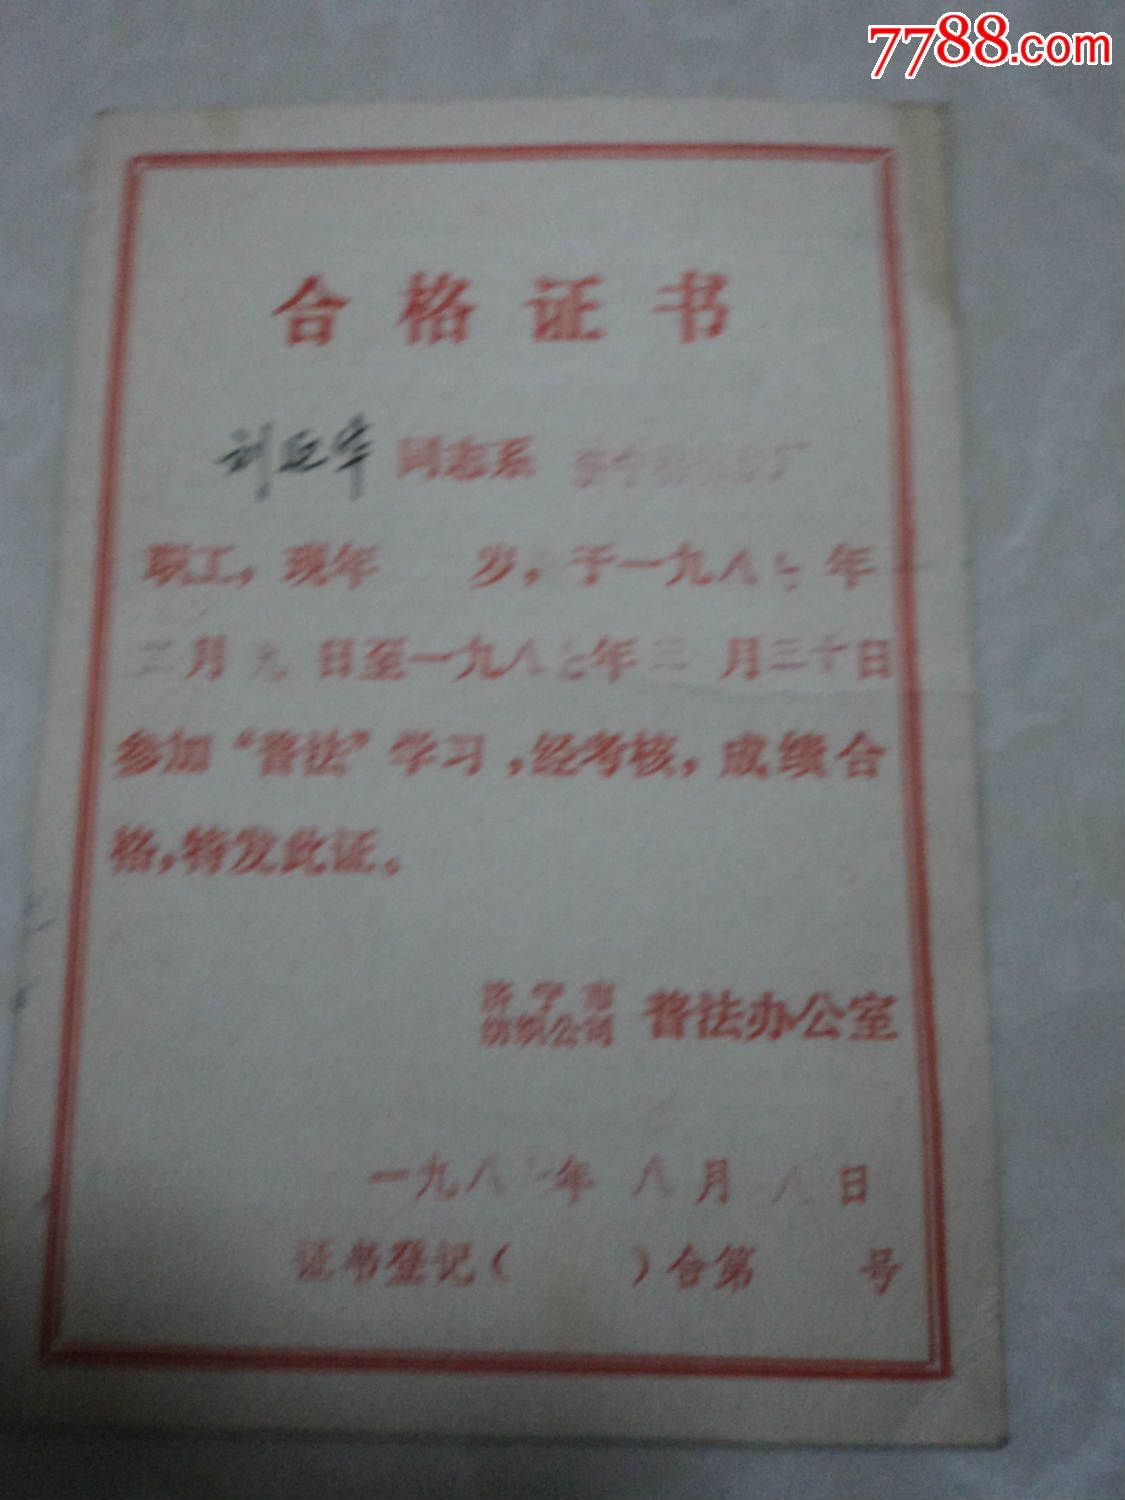 7788.com
合格证书
刘延华同志系
职工，现年 岁，于一九八七年
二月九日至一九八七年三月三十日
参加“普法”学习，经考核，成绩合
格，特发此证。
济宁市
纺织公司 普法办公室
一九八七年八月八日
证书登记（ ）合第 号